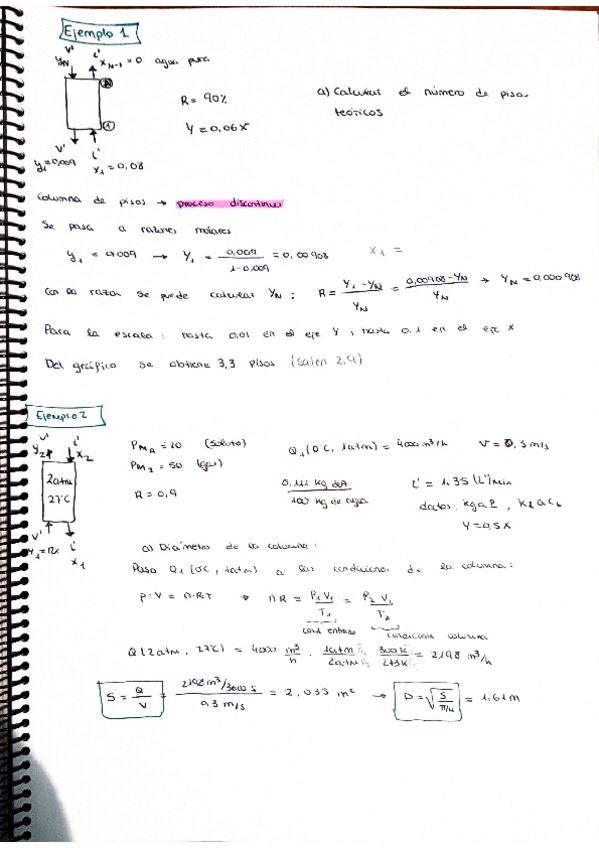 Ejemplo 1
V' L'
yN xN-1 = 0 agua pura
N
R = 90%
a) Calcular el número de pisos
teóricos
Y = 0,06X
1
V' L'
y1 = 0,009 x1 = 0,08
Columna de pisos → proceso discontinuo
Se pasa a razones molares
y1 = 0,009 → Y1 = 0,009 / 1-0,009 = 0,00908 x1 =
Con la razon se puede calcular YN : R = Y1 - YN / YN = 0,00908 - YN / YN → YN = 0,000908
Para la escala : hasta 0,01 en el eje Y , hasta 0,1 en el eje X
Del gráfico se obtiene 3,3 pisos (salen 2,9)
Ejemplo 2
V' L'
y2 x2
PMA = 20 (soluto)
Q1 (0C, 1atm) = 4000 m³/h V = 0,3 m/s
PM3 = 50 (gas)
2atm
27ºC
R = 0,9
0,111 kg de A / 100 kg de agua
L' = 1,35 (L')min
datos: kga.P , KLaCL
Y = 0,5X
V' L'
x1
a) Diámetro de la columna:
Paso Q1 (0C, 1atm) a las condiciones de la columna:
P·V = n·RT → nR = P1 V1 / T1 = P2 V2 / T2
cond entrada condiciones columna
Q (2atm, 27ºC) = 4000 m³/h · 1atm / 2atm · 300K / 273K = 2198 m³/h
S = Q / V = 2198 m³/3600 s / 0,3 m/s = 2,035 m² → D = √ S / π/4 = 1,61 m